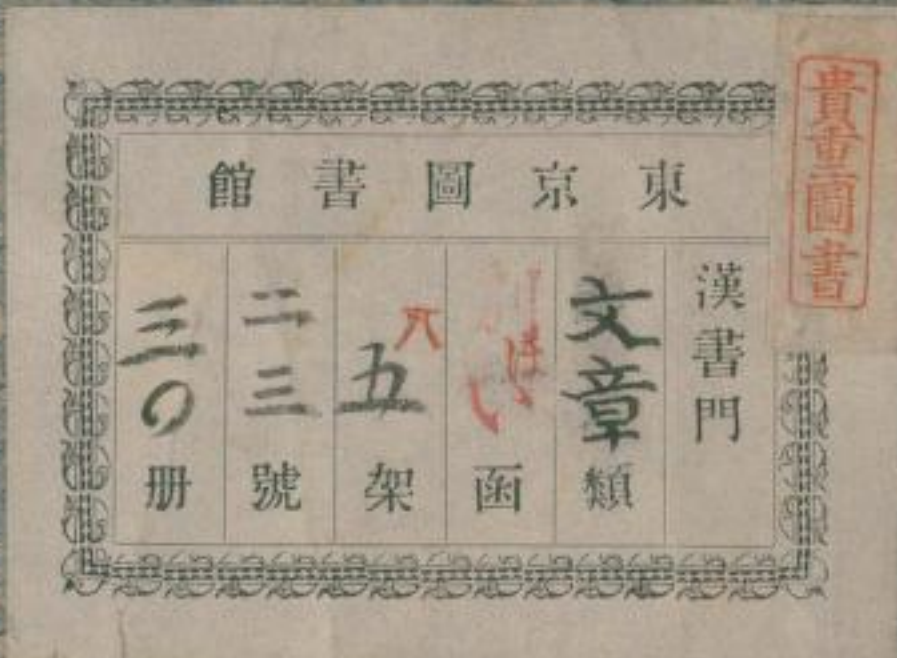 貴重圖書
東京圖書館
漢書門
文章類
函
五架
二三號
三〇册